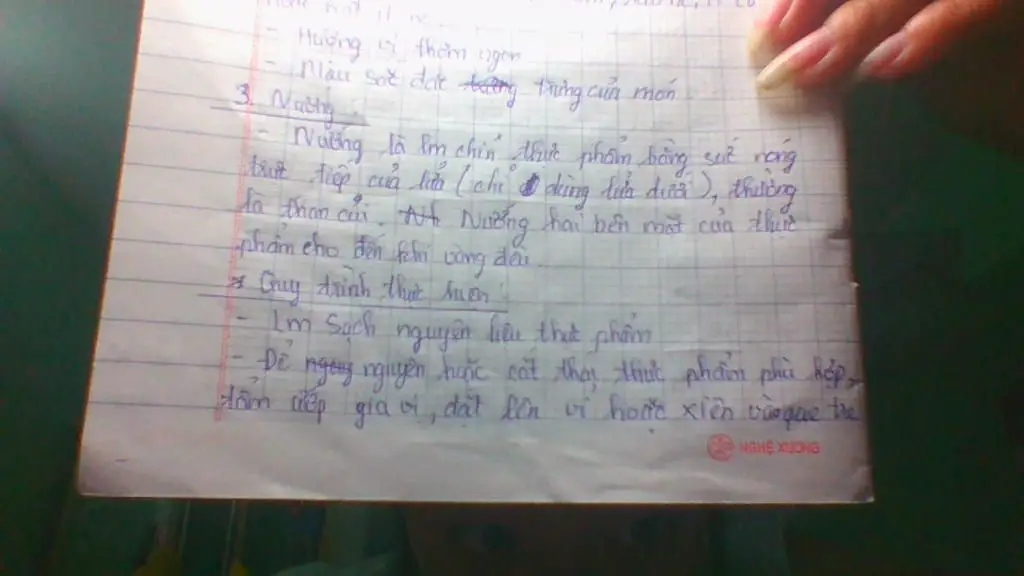 - Hương vị thơm ngon
- Màu sắc đặc trưng của món
3. Nướng
- Nướng là lm chín thực phẩm bằng sức nóng
trực tiếp của lửa (chỉ dùng lửa dưới), thường
là than củi. Nướng hai bên mặt của thực
phẩm cho đến khi vàng đều
* Quy trình thực hiện
- Lm sạch nguyên liệu thực phẩm
- Để nguyên hoặc cắt thái thực phẩm phù hợp,
tẩm ướp gia vị, đặt lên vỉ hoặc xiên vào que tre
NGHỆ XƯƠNG